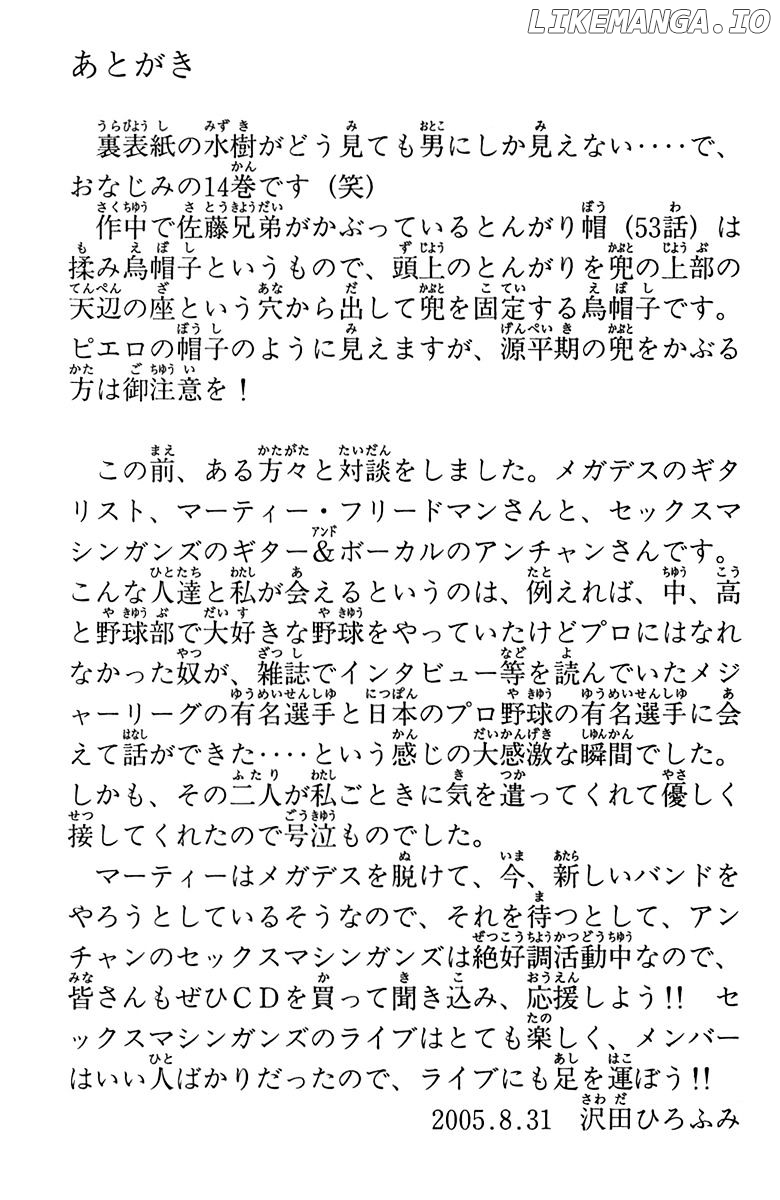 LIKEMANGA.IO
あとがき
裏表紙の水樹がどう見ても男にしか見えない‥‥で、
おなじみの14巻です（笑）
作中で佐藤兄弟がかぶっているとんがり帽（53話）は
揉み烏帽子というもので、頭上のとんがりを兜の上部の
天辺の座という穴から出して兜を固定する烏帽子です。
ピエロの帽子のように見えますが、源平期の兜をかぶる
方は御注意を！
この前、ある方々と対談をしました。メガデスのギタ
リスト、マーティー・フリードマンさんと、セックスマ
シンガンズのギター＆ボーカルのアンチャンさんです。
こんな人達と私が会えるというのは、例えれば、中、高
と野球部で大好きな野球をやっていたけどプロにはなれ
なかった奴が、雑誌でインタビュー等を読んでいたメジ
ャーリーグの有名選手と日本のプロ野球の有名選手に会
えて話ができた‥‥という感じの大感激な瞬間でした。
しかも、その二人が私ごときに気を遣ってくれて優しく
接してくれたので号泣ものでした。
マーティーはメガデスを脱けて、今、新しいバンドを
やろうとしているそうなので、それを待つとして、アン
チャンのセックスマシンガンズは絶好調活動中なので、
皆さんもぜひＣＤを買って聞き込み、応援しよう!!　セ
ックスマシンガンズのライブはとても楽しく、メンバー
はいい人ばかりだったので、ライブにも足を運ぼう!!
2005.8.31　沢田ひろふみ